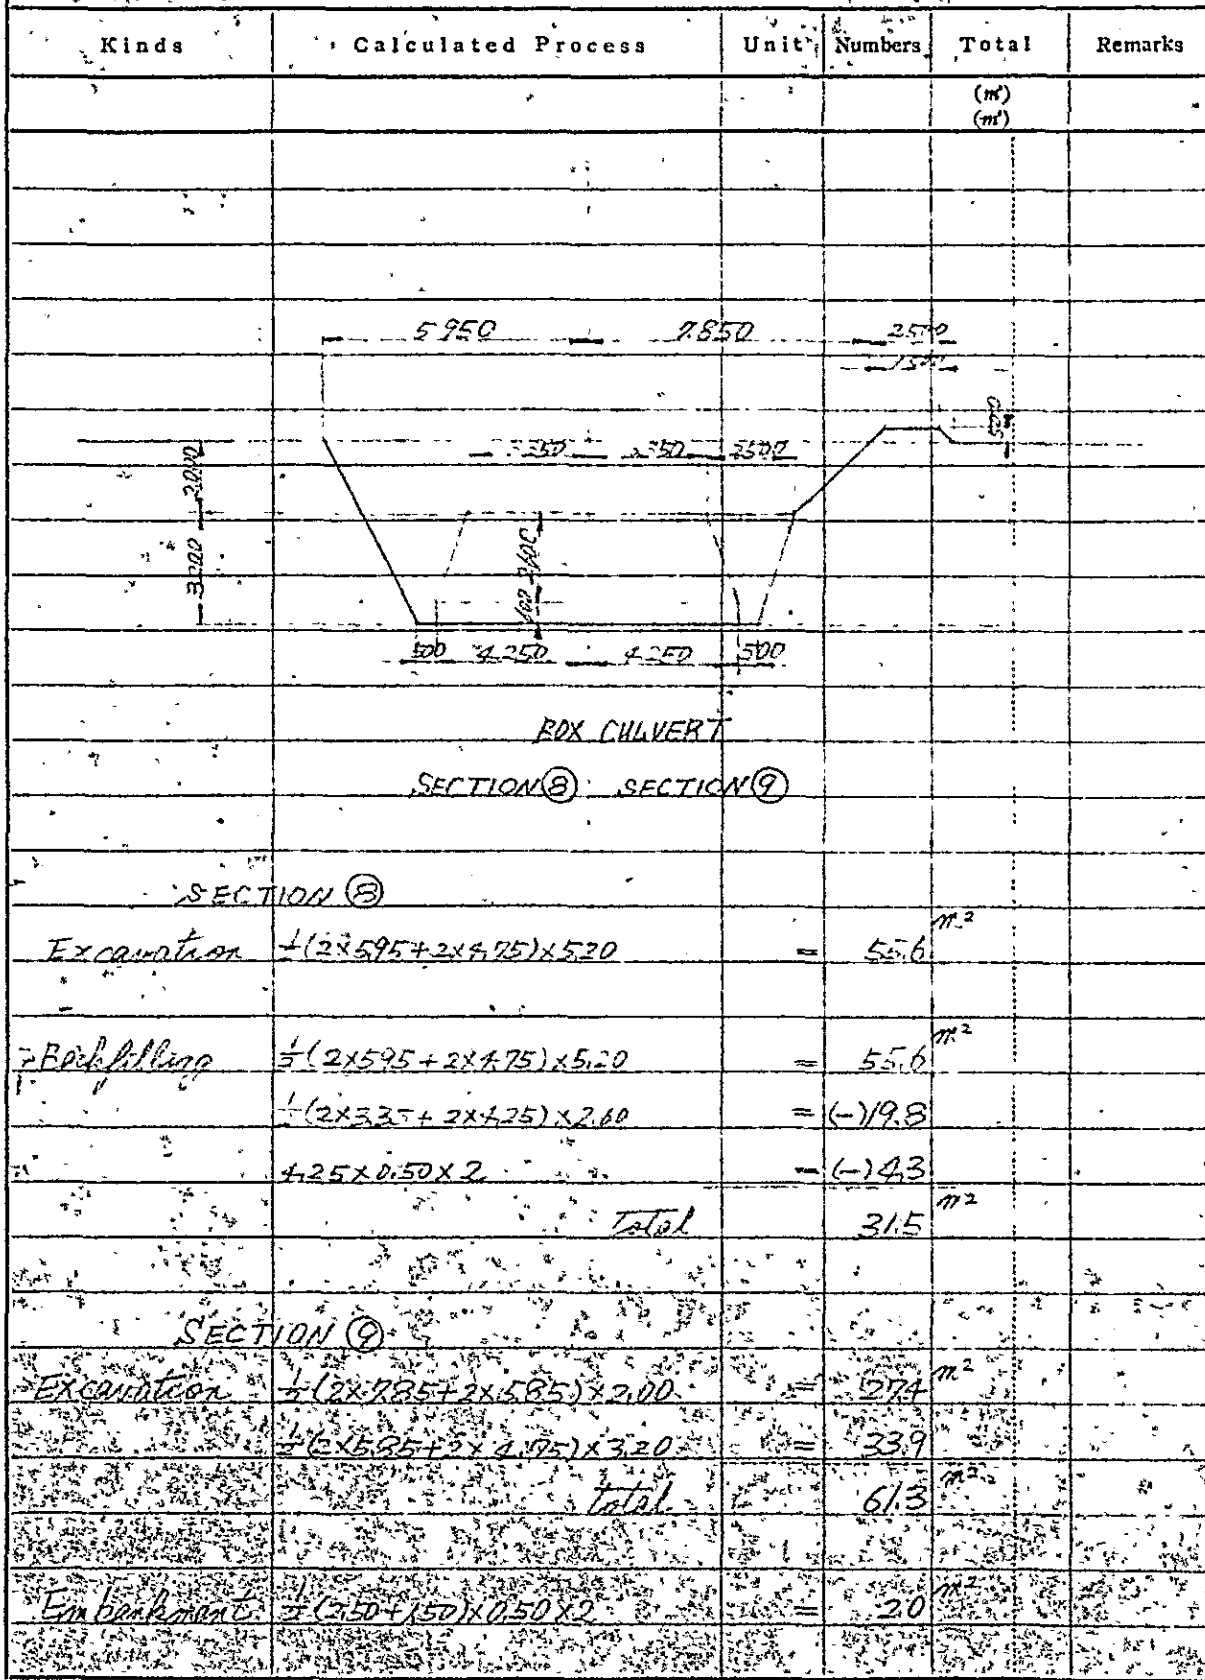 Kinds Calculated Process Unit Numbers Total Remarks
(m²)
(m³)
5950 7.850 2500
1500
2000
3200
3350 3350 2500
600 2600
500 4.250 4.250 500
BOX CULVERT
SECTION ⑧ SECTION ⑨
SECTION ⑧
Excavation ½(2×5.95+2×4.75)×5.20 = 55.6 m²
Backfilling ½(2×5.95+2×4.75)×5.20 = 55.6 m²
½(2×3.35+2×4.25)×2.60 = (-)19.8
4.25×0.50×2 = (-)4.3
Total 31.5 m²
SECTION ⑨
Excavation ½(2×7.85+2×5.85)×2.00 = 27.4 m²
½(2×5.85+2×4.75)×3.20 = 33.9
total 61.3 m²
Embankment ½(2.50+1.50)×0.50×2 = 2.0 m²